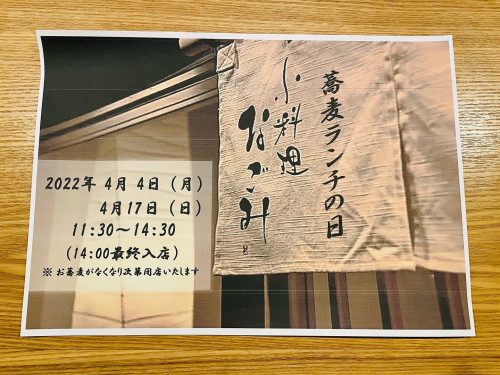 蕎麦ランチの日
小料理
なごみ
2022年 4月 4日（月）
4月17日（日）
11:30～14:30
（14:00最終入店）
※ お蕎麦がなくなり次第閉店いたします